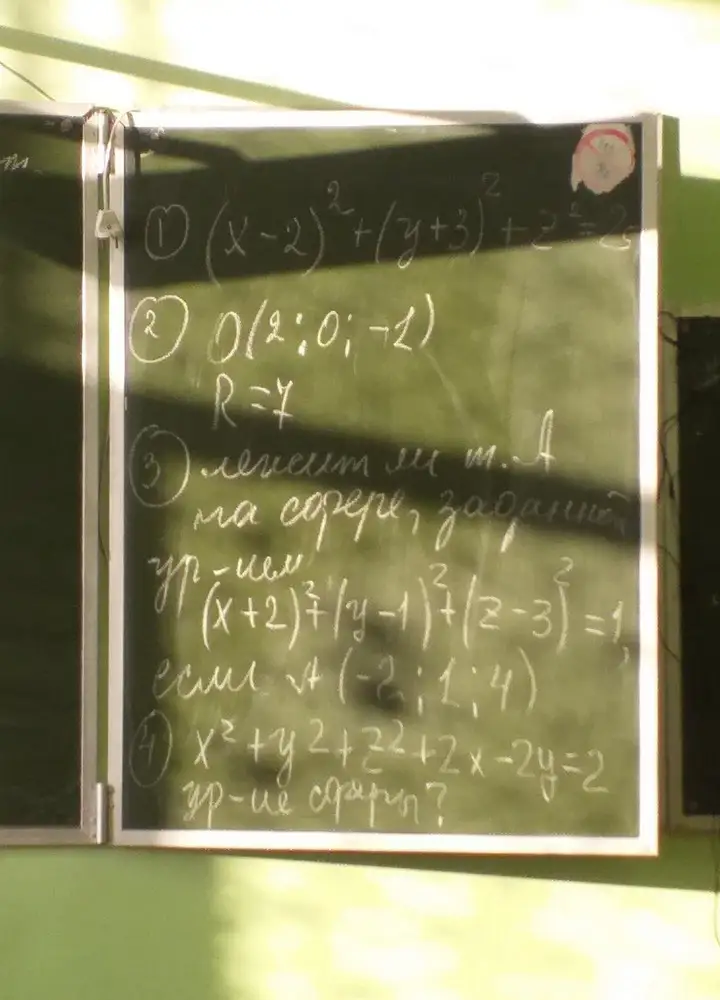 ① (x-2)² + (y+3)² + z² = 25
② O(2; 0; -1)
R = 7
③ лежит ли т. A
на сфере, заданной
ур-ием
(x+2)² + (y-1)² + (z-3)² = 1,
если A (-2; 1; 4)
④ x² + y² + z² + 2x - 2y = 2
ур-ие сферы?